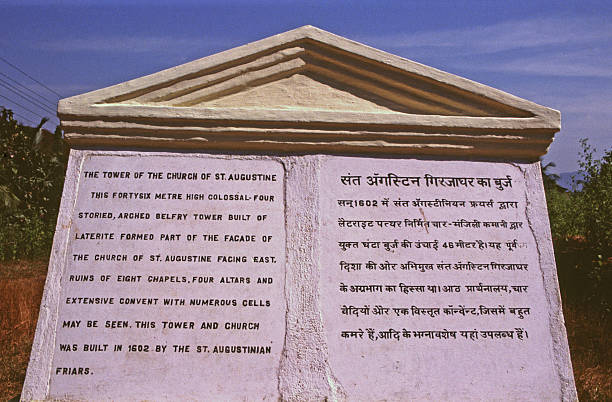 THE TOWER OF THE CHURCH OF ST. AUGUSTINE
THIS FORTYSIX METRE HIGH COLOSSAL-FOUR
STORIED, ARCHED BELFRY TOWER BUILT OF
LATERITE FORMED PART OF THE FACADE OF
THE CHURCH OF ST. AUGUSTINE FACING EAST.
RUINS OF EIGHT CHAPELS, FOUR ALTARS AND
EXTENSIVE CONVENT WITH NUMEROUS CELLS
MAY BE SEEN. THIS TOWER AND CHURCH
WAS BUILT IN 1602 BY THE ST. AUGUSTINIAN
FRIARS.
संत ऑगस्टिन गिरजाघर का बुर्ज
सन् 1602 में संत ऑगस्टीनियन फ्रायर्स द्वारा
लेटराइट पत्थर निर्मित चार-मंजिली कमानी द्वार
युक्त घंटा बुर्ज की उंचाई 46 मीटर है। यह पूर्व
दिशा की ओर अभिमुख संत ऑगस्टिन गिरजाघर
के अग्रभाग का हिस्सा था। आठ प्रार्थनालय, चार
वेदियों और एक विस्तृत कॉन्वेंट, जिसमें बहुत
कमरे हैं, आदि के भग्नावशेष यहां उपलब्ध हैं।